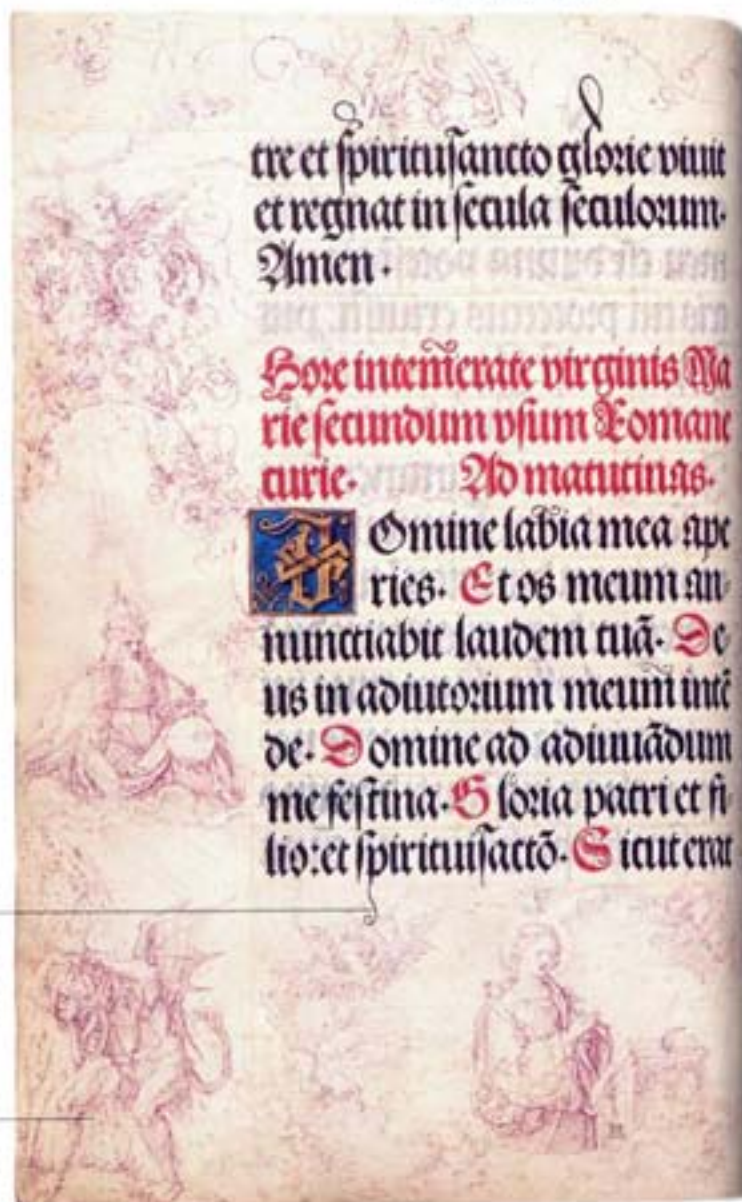 tre et spiritusancto glorie viuit
et regnat in secula seculorum.
Amen.
Hore intemerate virginis Ma
rie secundum vsum Romane
curie. Ad matutinas.
Domine labia mea ape
ries. Et os meum an
nunctiabit laudem tuã. De
us in adiutorium meum intẽ
de. Domine ad adiuuãdum
me festina. Gloria patri et fi
lio: et spirituisactõ. Sicut erat